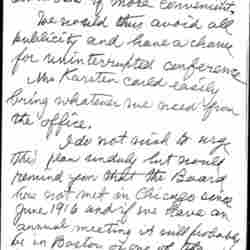 if more convenient.
We would thus avoid all
publicity and have a chance
for uninterrupted conference
Mrs Karsten could easily
bring whatever we need from
the office.
I do not wish to urge
this plan unduly but would
remind you that the Board
has not met in Chicago since
June 1916 and if we have an
annual meeting it will probably
be in Boston or one of the